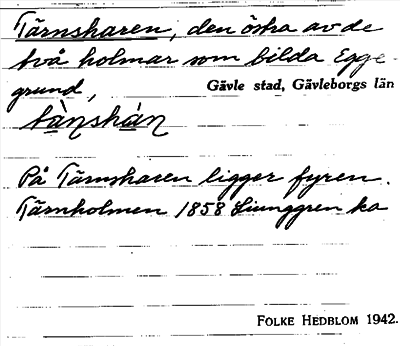 Tärnsharen, den östra av de
två holmar som bilda Egge-
grund, Gävle stad, Gävleborgs län
tä̀nshàn
På Tärnsharen ligger fyren.
Tärnholmen 1858 Ljunggren ka
FOLKE HEDBLOM 1942.